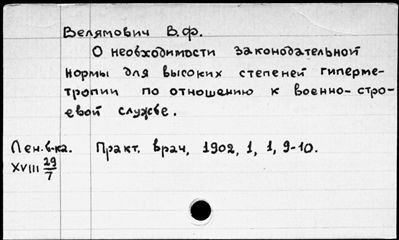 Велямович В.Ф.
О необходимости законодательной
нормы для высоких степеней гиперме-
тропии по отношению к военно-стро-
евой службе.
Лен.в-ка. Практ. врач, 1902, 1, 1, 9-10.
XVIII 29/7